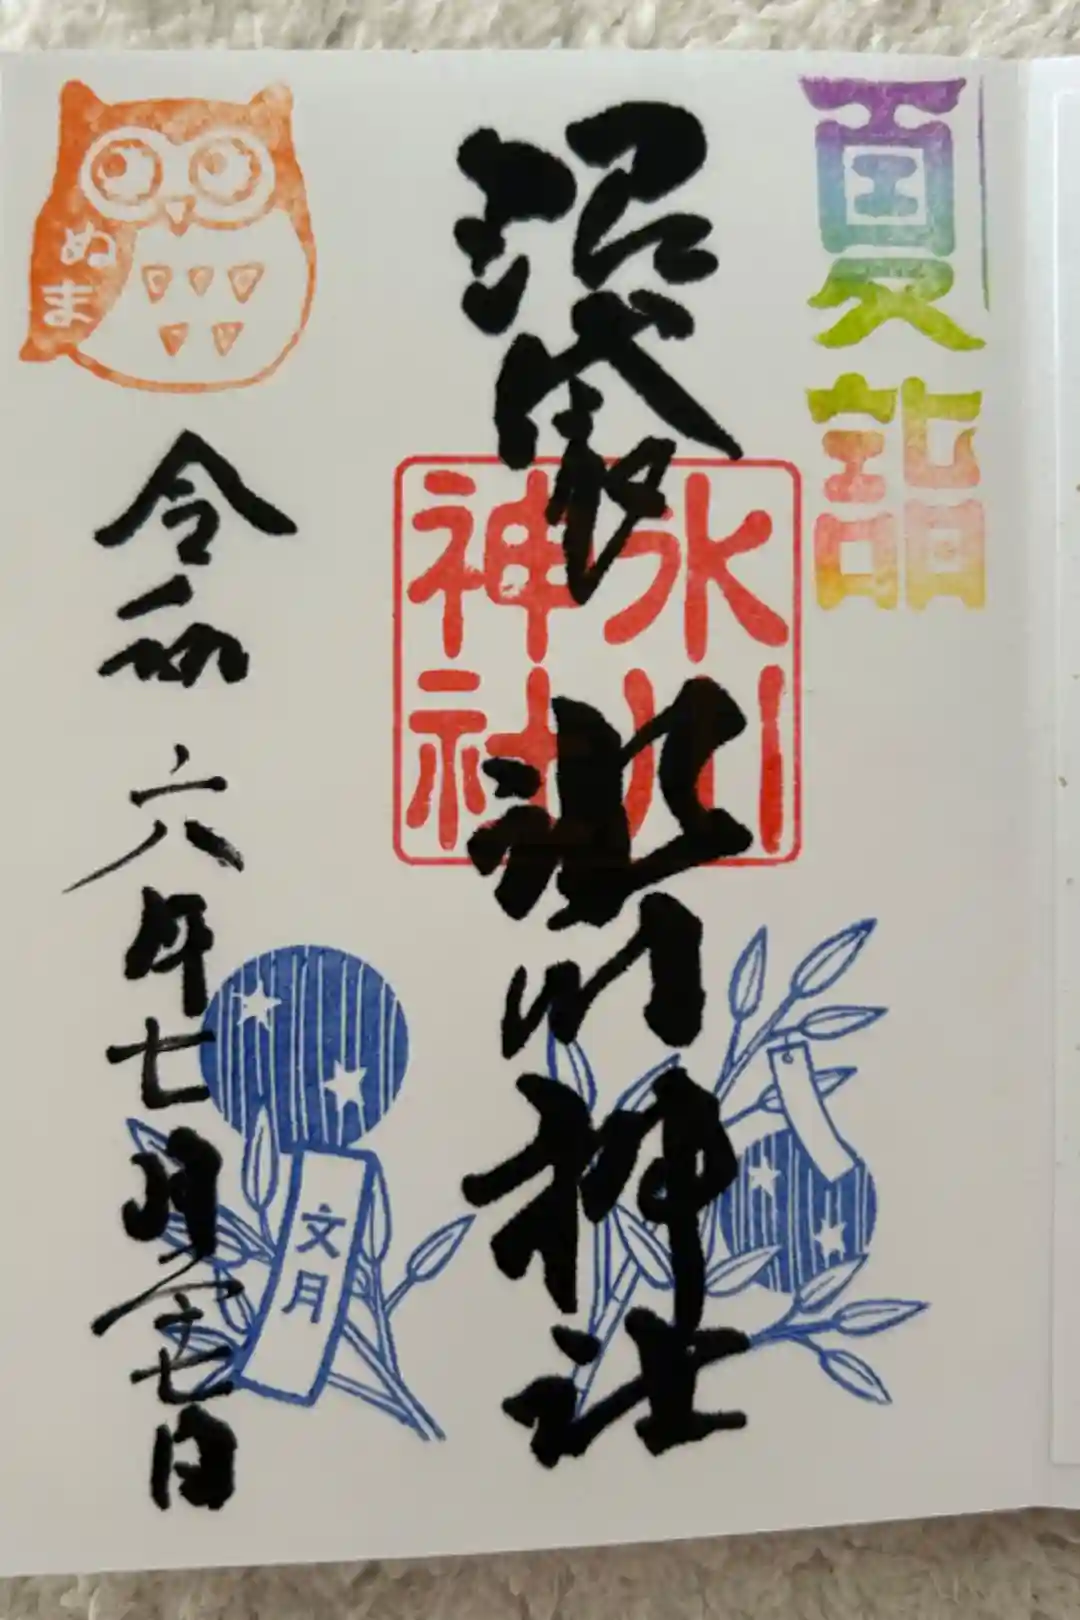 夏詣
沼袋氷川神社
氷川
神社
ぬま
令和六年七月二十七日
文月